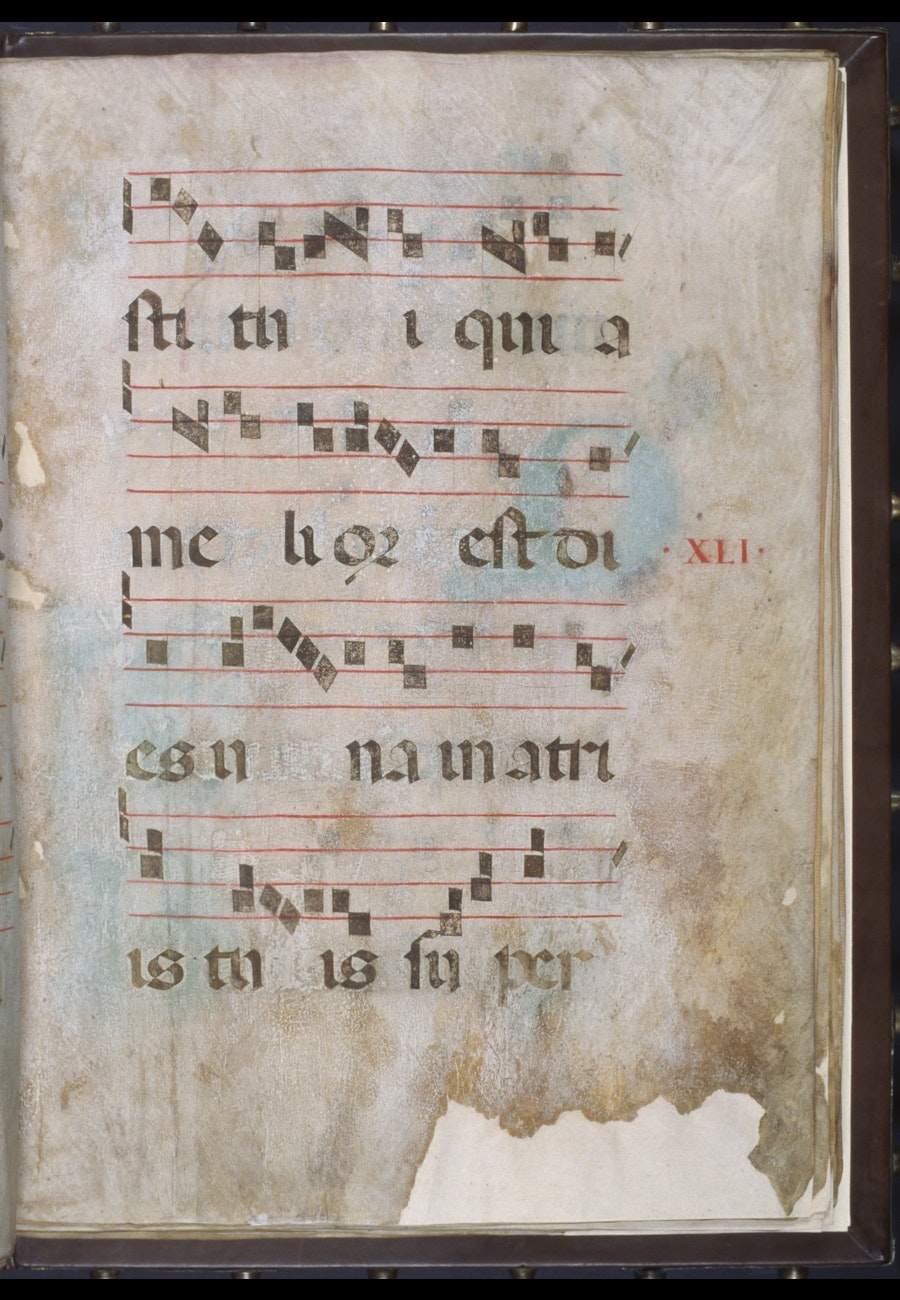 sti tu i qui a
me li or est di
· XLI ·
es u na in atri
is tu is su per